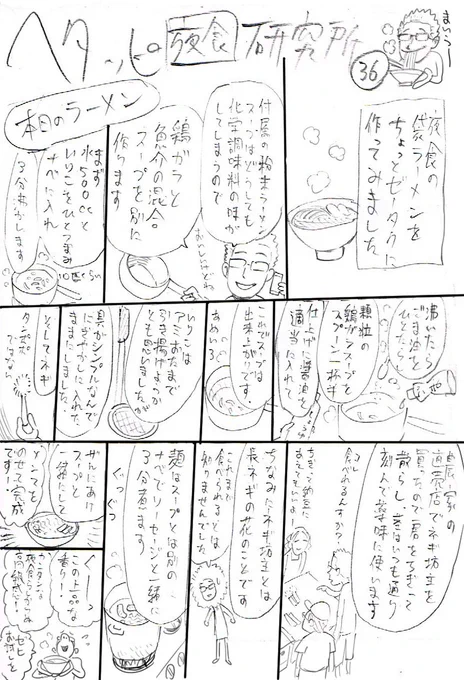 ヘタッピ夜食研究所
36
まいうー
夜食の
袋ラーメンを
ちょっとゼータクに
作ってみました
本日のラーメン
付属の粉末ラーメン
スープはどうしても
化学調味料の味が
してしまうので
おいしいけどね
鶏ガラと
魚介の混合
スープを別に
作ります
まず
水500ccと
いりこをひとつまみ
10匹くらい
ナベに入れ
3分沸かします
沸いたら
ごま油を
ひとたらし
顆粒の
鶏ガラスープを
スプーン一杯
仕上げに醤油を
適当に入れて
これでスープは
出来上がりです
いりこは
アミおたまで
引き揚げようか
とも思いましたが
具がシンプルなんで
ままにしました
そしてネギ
直売店でネギ坊主を
買ったので房をちぎって
散らし茎はいつも通り
刻んで薬味に使います
食べれるんすか?
ちなみにネギ坊主とは
長ネギの花のことです
これまで
食べられるとは
知りませんでした
麺はスープとは別の
ナベでソーセージと一緒
3分煮ます
ぐつぐつ
ぜんぶあけ
スープと
一緒にして
のせて完成
です!
くーっ
この上品な
香り!